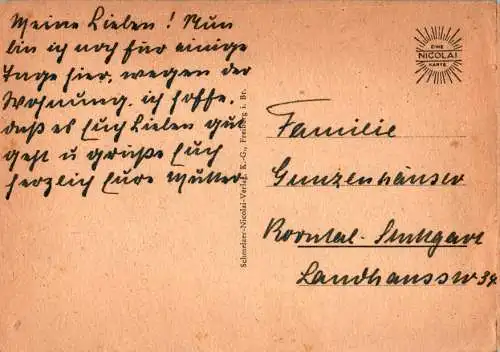 Meine Lieben! Nun
bin ich noch für einige
Tage hier, wegen der
Wohnung. ich hoffe,
daß es Euch Lieben gut
geht u grüße Euch
herzlich Eure Mutter
EINE
NICOLAI
KARTE
Schmelzer-Nicolai-Verlag, K.-G., Freiburg i. Br.
Familie
Gunzenhäuser
Korntal-Stuttgart
Landhausstr 34